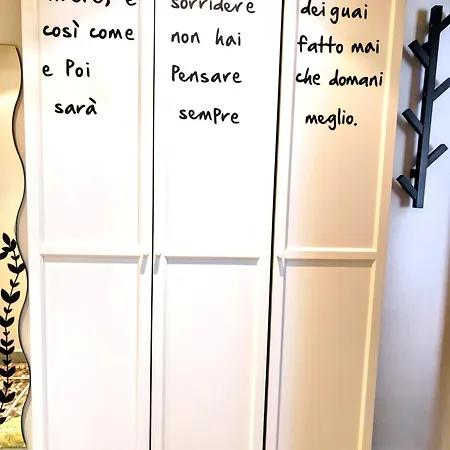 così come
e Poi
sarà
sorridere
non hai
Pensare
sempre
dei guai
fatto mai
che domani
meglio.